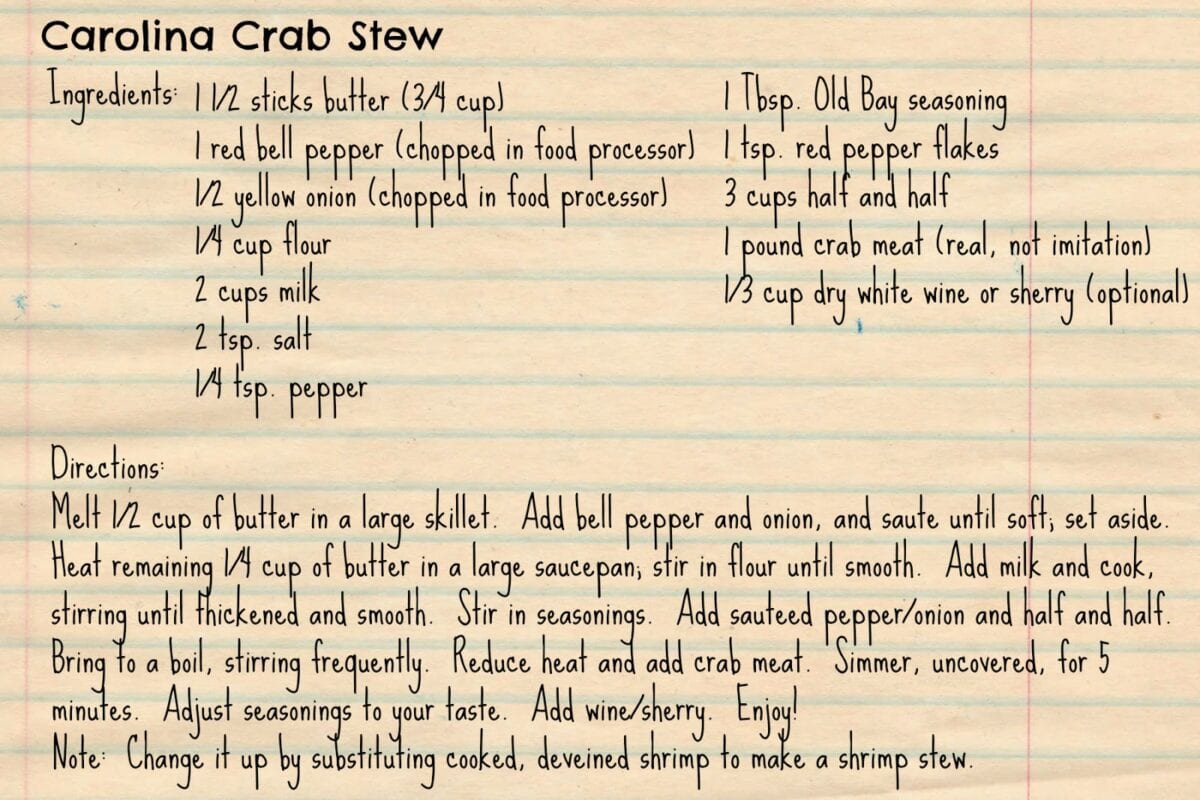 Carolina Crab Stew
Ingredients: 1 1/2 sticks butter (3/4 cup)
1 red bell pepper (chopped in food processor)
1/2 yellow onion (chopped in food processor)
1/4 cup flour
2 cups milk
2 tsp. salt
1/4 tsp. pepper
1 Tbsp. Old Bay seasoning
1 tsp. red pepper flakes
3 cups half and half
1 pound crab meat (real, not imitation)
1/3 cup dry white wine or sherry (optional)
Directions:
Melt 1/2 cup of butter in a large skillet. Add bell pepper and onion, and saute until soft; set aside.
Heat remaining 1/4 cup of butter in a large saucepan; stir in flour until smooth. Add milk and cook,
stirring until thickened and smooth. Stir in seasonings. Add sauteed pepper/onion and half and half.
Bring to a boil, stirring frequently. Reduce heat and add crab meat. Simmer, uncovered, for 5
minutes. Adjust seasonings to your taste. Add wine/sherry. Enjoy!
Note: Change it up by substituting cooked, deveined shrimp to make a shrimp stew.